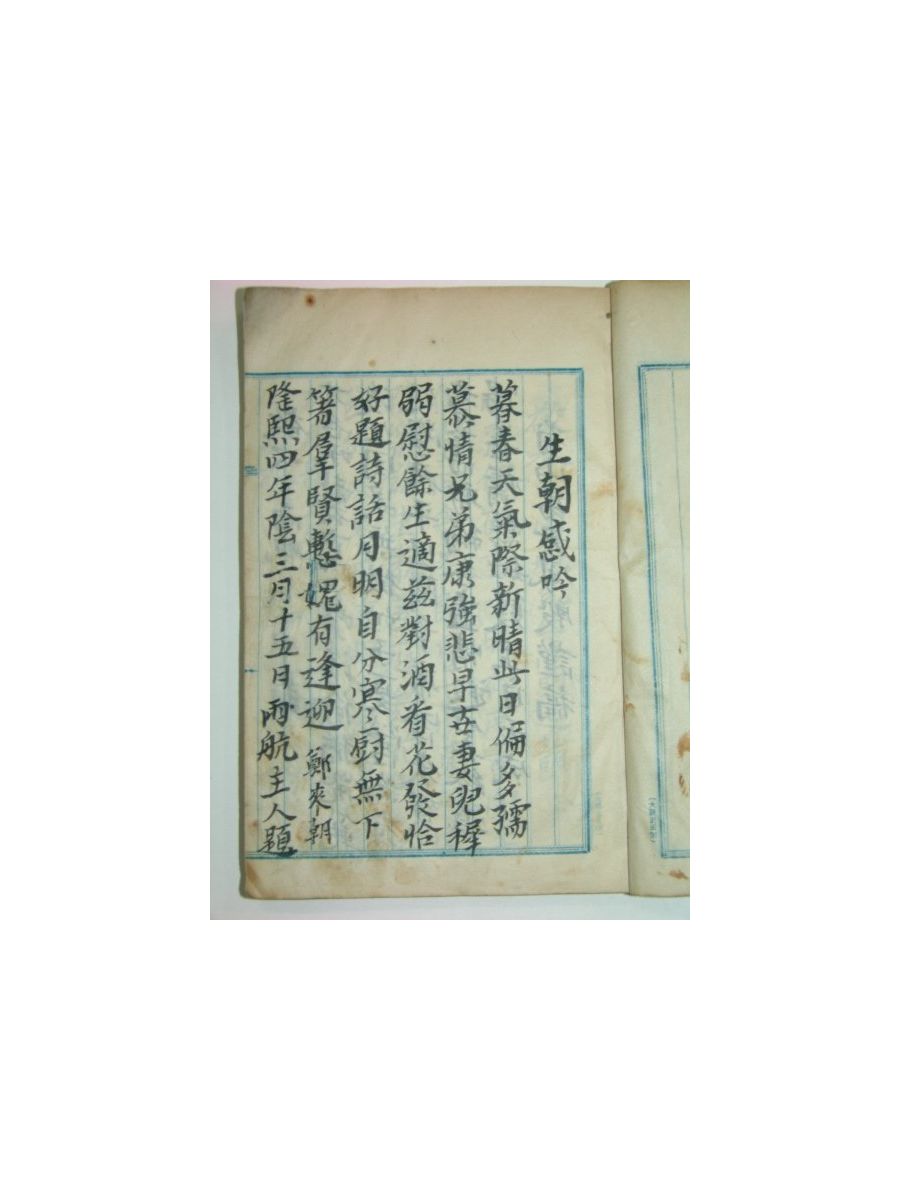 生朝感吟
暮春天氣際新晴此日偏多孺
慕情兄弟康強悲早世妻兒稺
弱慰餘生適玆對酒看花發恰
好題詩話月明自分寒厨無下
箸羣賢慙媿有逢迎 鄭來朝
隆熙四年陰三月十五日雨航主人題